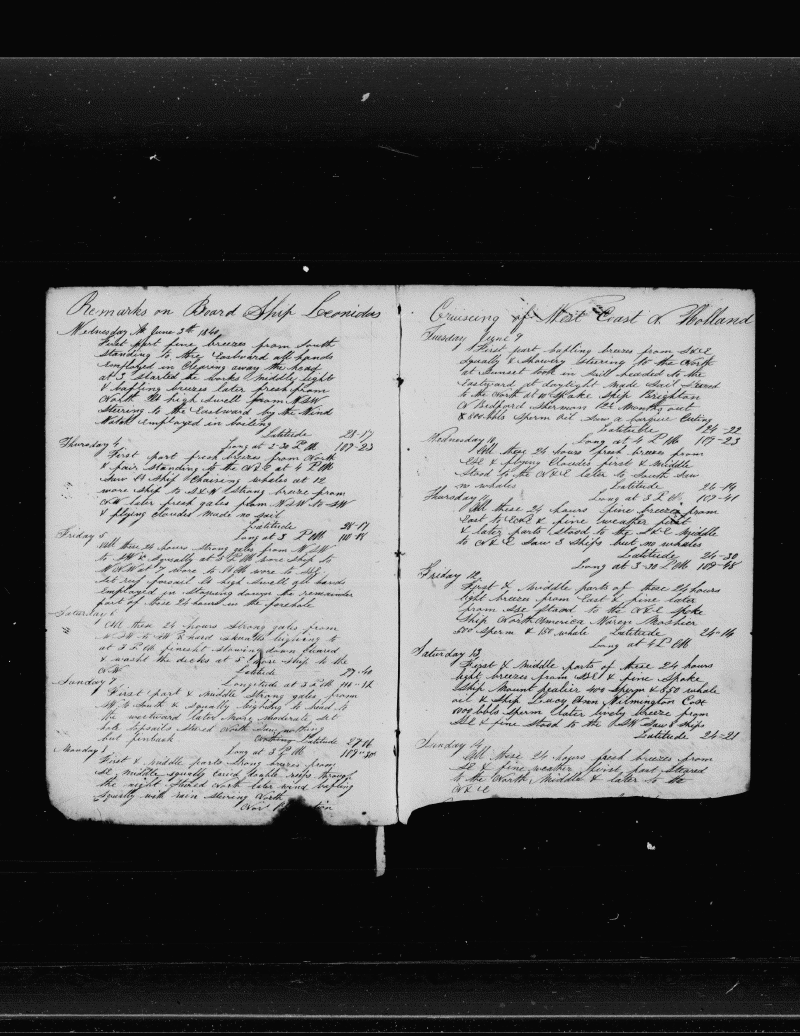 Remarks on Board Ship Leonidas
Wednesday June 3th 1840
First part fine breezes from South
Standing to the Eastward all hands
employed in Clearing away the head
at 3 started the works Middle light
& baffling breezes later fresh from
North high swell from WSW
Steering to the Eastward by the Wind
Watch employed in boiling
Latitude 28-17
Thursday 4 Long at 2-30 P M 109-23
First part fresh breezes from North
& fair Standing to the at 4 P M
Saw A Ship Chaising whales at 12
wore ship to S & W Strong breeze from
later fresh gales from WSW
& flying cloudes made no sail
Latitude 28-17
Friday 5 Long at 3 P M
All these 24 hours Strong gales from WSW
to & squally at 3 P M wore Ship to
at 7 wore to
set reef foresail to high Swell all hands
employed in stowing down the remainder
part of these 24 hours in the forehole
Saturday 6
All these 24 hours strong gales from
to hard squalls
at 3 P M finesht stowing down Cleared
& washt the decks at 5 wore ship to the
Latitude 27-40
Sunday 7 Longitude at 3 P M
First part & Middle strong gales from
to South & squally to the
the westward later More moderate set
topsails Stered North Saw nothing
but finback Latitude
Monday 8 Long at 3 P M
First & middle parts strong breezes from
Middle squally reefs through
the night Stered North later wind bafling
squally with rain steering North

Cruiseing of West Coast N. Holland
Tuesday June 9
First part bafling breezes from S&E
squally & showery Steering to the North
at Sunset took in Sail headed to the
Eastward at daylight Made Sail Steared
to the North at 10 Spoke Ship Brighton
N Bedford Sherman Months out
& 800 bbls Sperm Oil Saw a
Latitude 24-22
Wednesday 10 Long at 4 P M 109-23
All these 24 hours fresh breezes from
& flying Cloudes first & Middle
Stood to the N & E later to South Saw
no whales Latitude 24-14
Thursday 11 Long at 3 P M 109-41
All these 24 hours fine breezes from
East to & fine weather first
& later parts Stood to the Middle
to N & E Saw 3 Ships but no whales
Latitude 24-30
Long at 3-30 P M
Friday 12
First & Middle parts of these 24 hours
light breezes from East & fine later
from Stood to the N & E Spoke
Ship North America Mosher
500 Sperm & 150 whale Latitude 24-16
Long at 4 P M
Saturday 13
First & Middle parts of these 24 hours
light breezes from & fine Spoke
Ship Mount 400 Sperm & 350 whale
oil & Ship Lucy Ann Wilmington Cox
1000 bbls Sperm later lively breeze from
& fine Stood to the Saw 8 Ships
Latitude 24-21
Sunday 14
All these 24 hours fresh breezes from
& fine weather first part Steared
to the North Middle & later to the
N & E